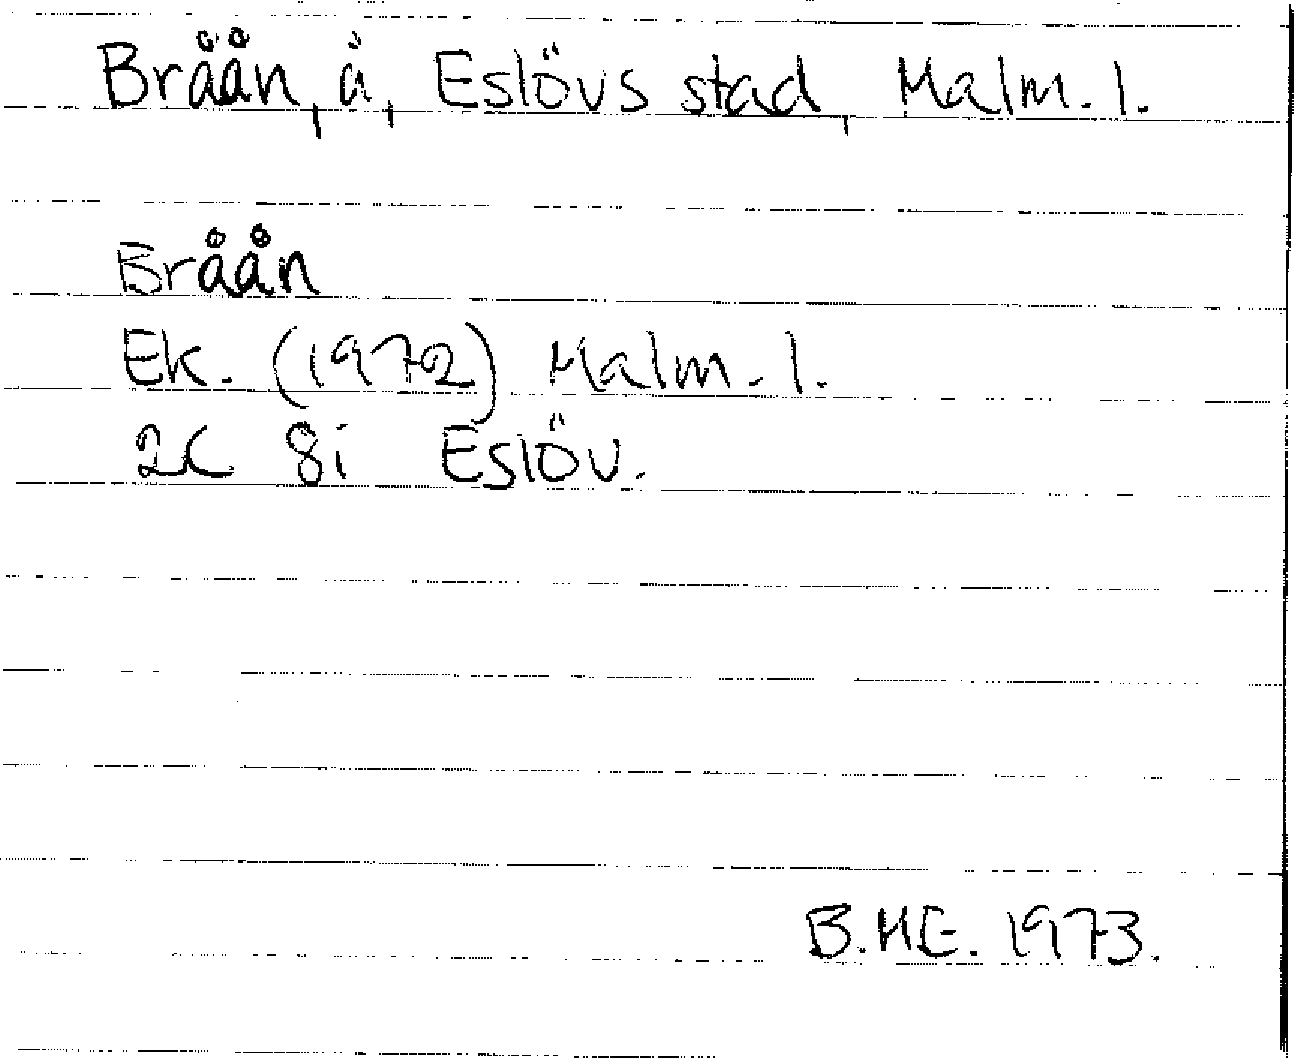 Bråån, å, Eslövs stad, Malm. l.
Bråån
Ek. (1972) Malm. l.
2C 8i Eslöv.
B.ME. 1973.